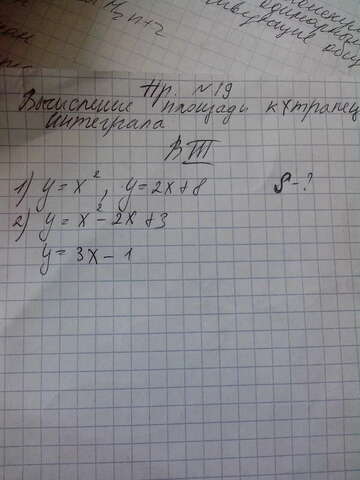 H₂n+2
Пр. №19
Вычисление площади к трапец
интеграла
В III
1) y = x², y = 2x+8 S-?
2) y = x² - 2x + 3
y = 3x - 1